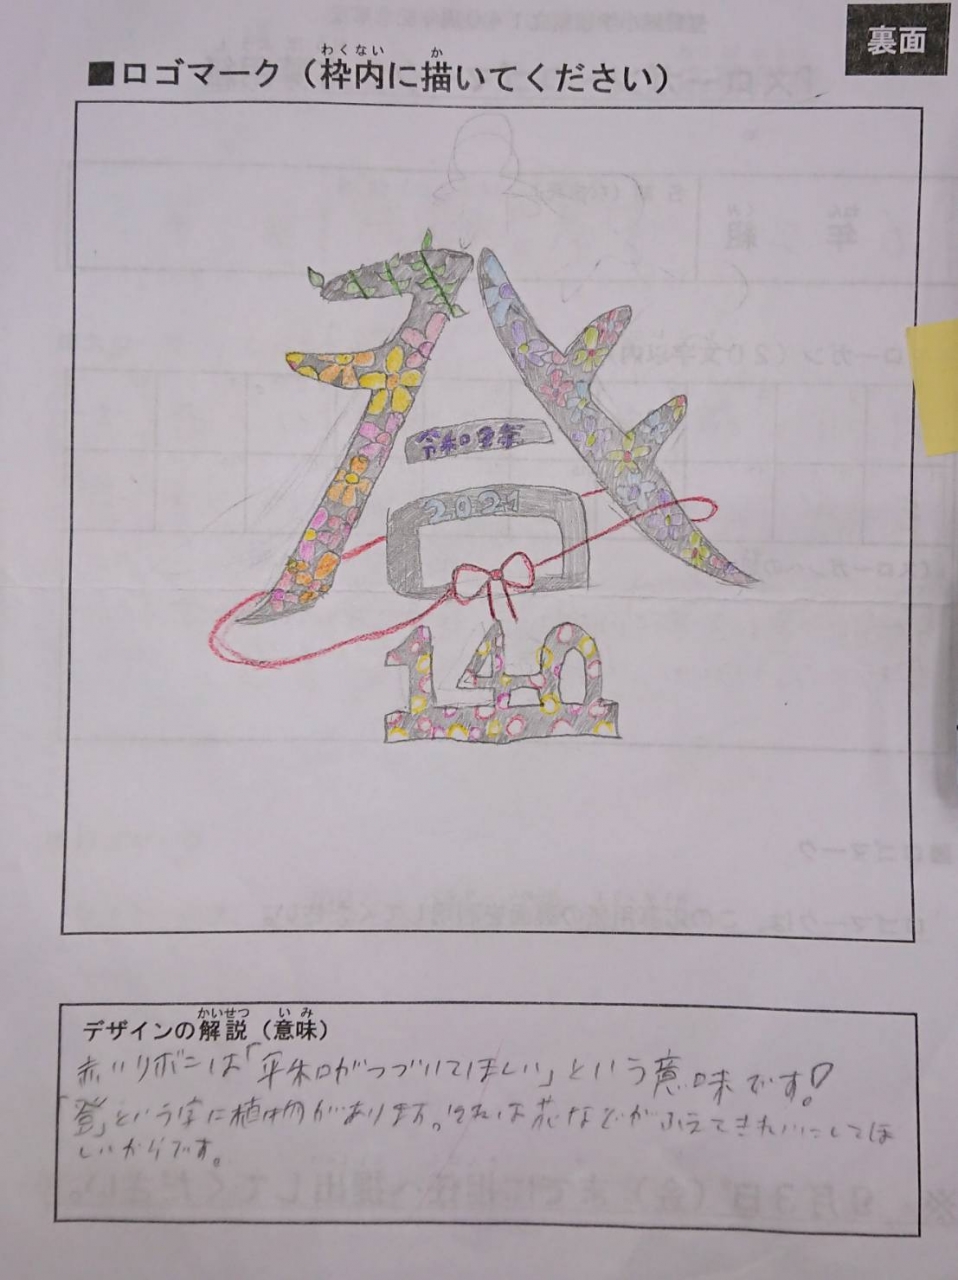 裏面
■ロゴマーク（枠内に描いてください）
わくない か
2021
140
デザインの解説（意味）
かいせつ いみ
赤いリボンは「平和がつづいてほしい」という意味です!
「登」という字に植物があります。それは花などがふえてきれいにしてほ
しいからです。